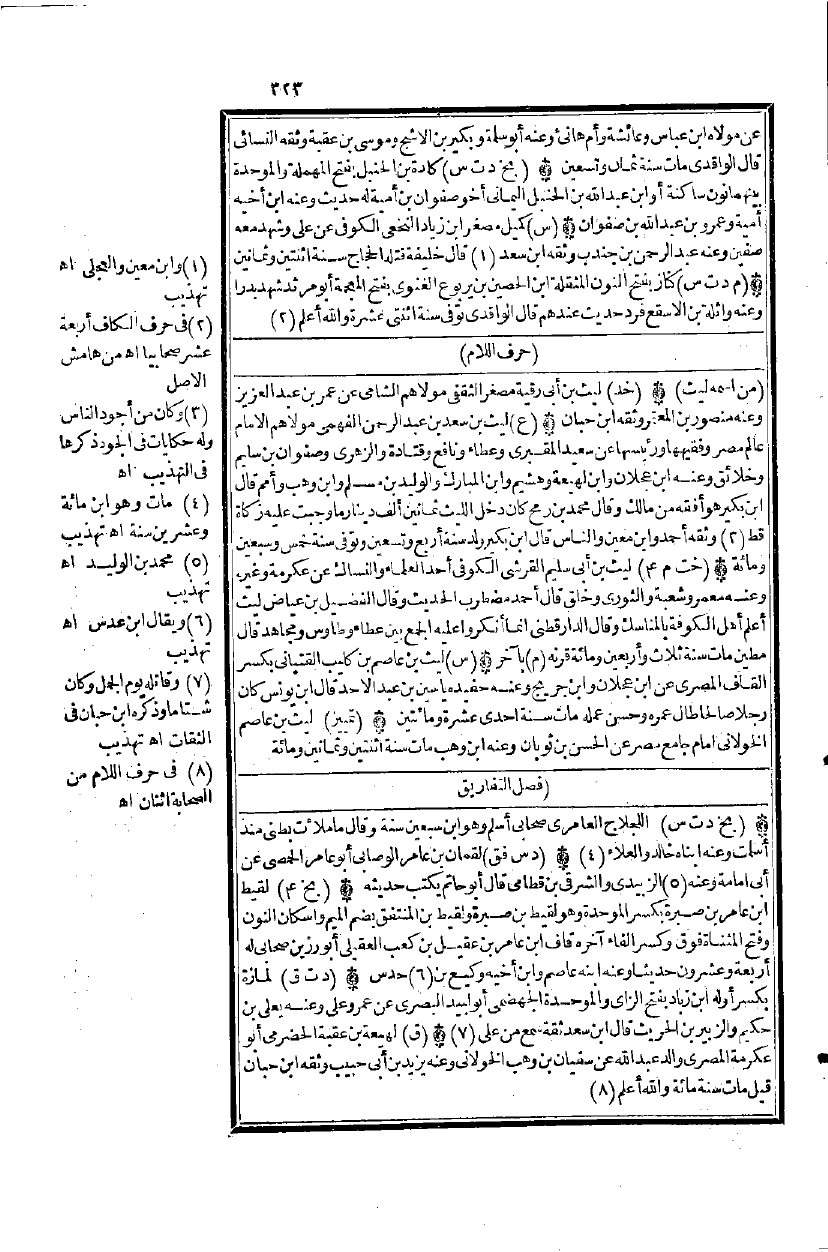 ٣٢٣
عن مولاه ابن عباس وعائشة وأم هانئ وعنه أبو سلمة و بكير بن الاشج وموسى بن عقبة وثقه النسائى
قال الواقدى مات سنة ثمان وتسعين (بخ د ت س) كلدة بن الحنبل بفتح المهملة والموحدة
بينهما نون ساكنة أو ابن عبد الله بن الحنبل اليمانى أخو صفوان بن أمية له حديث وعنه ابن أخيه
أمية وعمرو بن عبد الله بن صفوان (س) كميل مصغر ابن زياد النخعى الكوفى عن على وشهد معه
صفين وعنه عبد الرحمن بن جندب وثقه ابن سعد (١) قال خليفة قتله الحجاج سنة اثنتين وثمانين
(م د ت س) كناز بفتح النون المثقلة ابن الحصين بن يربوع الغنوى بفتح المعجمة أبو مرثد شهد بدرا
وعنه واثلة بن الاسقع فرد حديث عندهم قال الواقدى توفى سنة اثنتى عشرة والله أعلم (٢)
(حرف اللام)
(من اسمه ليث) (خد) ليث بن أبى رقية مصغر الثقفى مولاهم الشامى عن عمر بن عبد العزيز
وعنه منصور بن المعتمر وثقه ابن حبان (ع) ليث بن سعد بن عبد الرحمن الفهمى مولاهم الامام
عالم مصر وفقيهها ورئيسها عن سعيد المقبرى وعطاء ونافع وقتادة والزهرى وصفوان بن سليم
وخلائق وعنه ابن عجلان وابن لهيعة وهشيم وابن المبارك والوليد بن مسلم وابن وهب وأمم قال
ابن بكير هو أفقه من مالك وقال محمد بن رمح كان دخل الليث ثمانين ألف دينار ما وجبت عليه زكاة
قط (٣) وثقه أحمد وابن معين والناس قال ابن بكير ولد سنة أربع وتسعين وتوفى سنة خمس وسبعين
ومائة (خت م ٤) ليث بن أبى سليم القرشى الكوفى أحد العلماء والنساك عن عكرمة وغيره
وعنه معمر وشعبة والثورى وخلق قال أحمد مضطرب الحديث وقال الفضيل بن عياض ليث
أعلم أهل الكوفة بالمناسك وقال الدارقطنى انما أنكروا عليه الجمع بين عطاء وطاوس ومجاهد قال
مطين مات سنة ثلاث وأربعين ومائة قرنه (م) بآخر (س) ليث بن عاصم بن كليب القتبانى بكسر
القاف المصرى عن ابن عجلان وابن جريج وعنه حفيده ياسين بن عبد الاحد قال ابن يونس كان
رجلا صالحا طال عمره وحسن عمله مات سنة احدى عشرة ومائتين (تمييز) ليث بن عاصم
الخولانى امام جامع مصر عن الحسن بن ثوبان وعنه ابن وهب مات سنة اثنتين وثمانين ومائة
(فصل التفاريق)
(بخ د ت س) اللجلاج العامرى صحابى أسلم وهو ابن سبعين سنة وقال ما ملأت بطنى منذ
أسلمت وعنه ابناه خالد والعلاء (٤) (د س فق) لقمان بن عامر الوصابى أبو عامر الحمصى عن
أبى امامة وعنه (٥) الزبيدى والشرقى بن قطامى قال أبو حاتم يكتب حديثه (بخ ٤) لقيط
ابن عامر بن صبرة بكسر الموحدة وهو لقيط بن صبرة ولقيط بن المنتفق بضم الميم واسكان النون
وفتح المثناة فوق وكسر الفاء آخره قاف ابن عامر بن عقيل بن كعب العقيلى أبو رزين صحابى له
أربعة وعشرون حديثا وعنه ابنه عاصم وابن أخيه وكيع بن (٦) حدس (د ت ق) لمازة
بكسر أوله ابن زباد بفتح الزاى والموحدة الجهضمى أبو لبيد البصرى عن عمر وعلى وعنه يعلى بن
حكيم والزبير بن الخريت قال ابن سعد ثقة سمع من على (٧) (ق) لهيعة بن عقبة الحضرمى أبو
عكرمة المصرى والد عبد الله عن سفيان بن وهب الخولانى وعنه يزيد بن أبى حبيب وثقه ابن حبان
قيل مات سنة مائة والله أعلم (٨)
(١) وابن معين والعجلى اه
تهذيب
(٢) فى حرف الكاف أربعة
عشر صحابيا اه من هامش
الاصل
(٣) وكان من أجود الناس
وله حكايات فى الجود ذكرها
فى التهذيب اه
(٤) مات وهو ابن مائة
وعشرين سنة اه تهذيب
(٥) محمد بن الوليد اه
تهذيب
(٦) ويقال ابن عدس اه
تهذيب
(٧) وقاتله يوم الجمل وكان
شتاما وذكره ابن حبان فى
الثقات اه تهذيب
(٨) فى حرف اللام من
الصحابة اثنان اه